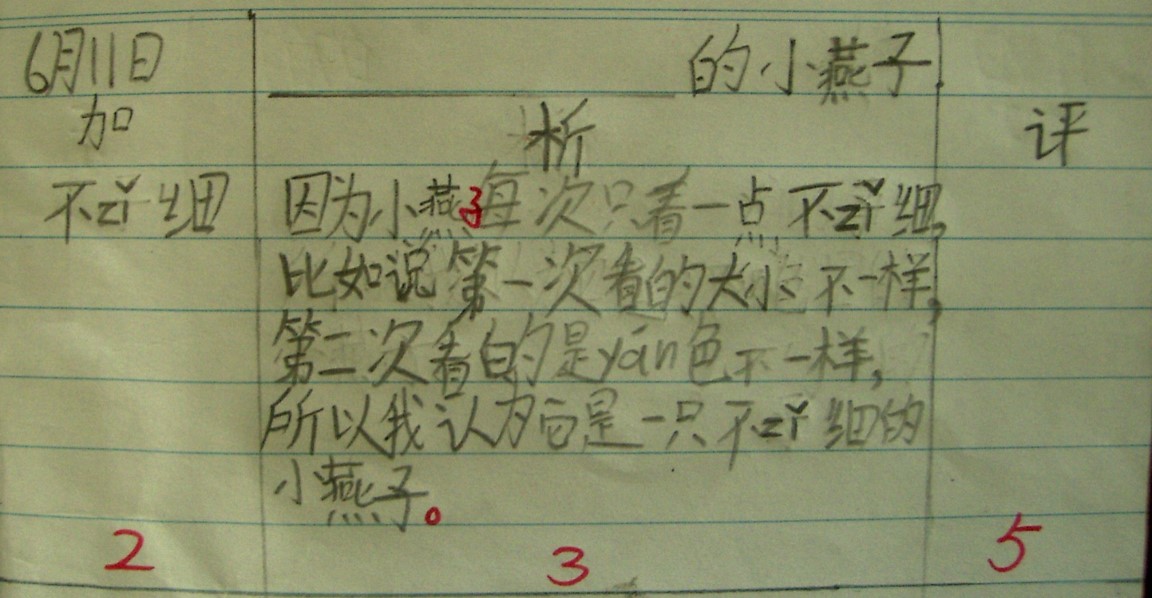 6月11日
__________的小燕子
加
析
评
不zǐ细
因为小燕子每次只看一点不zǐ细,
比如说第一次看的大小不一样,
第二次看的是yán色不一样,
所以我认为它是一只不zǐ细的
小燕子。
2
3
5